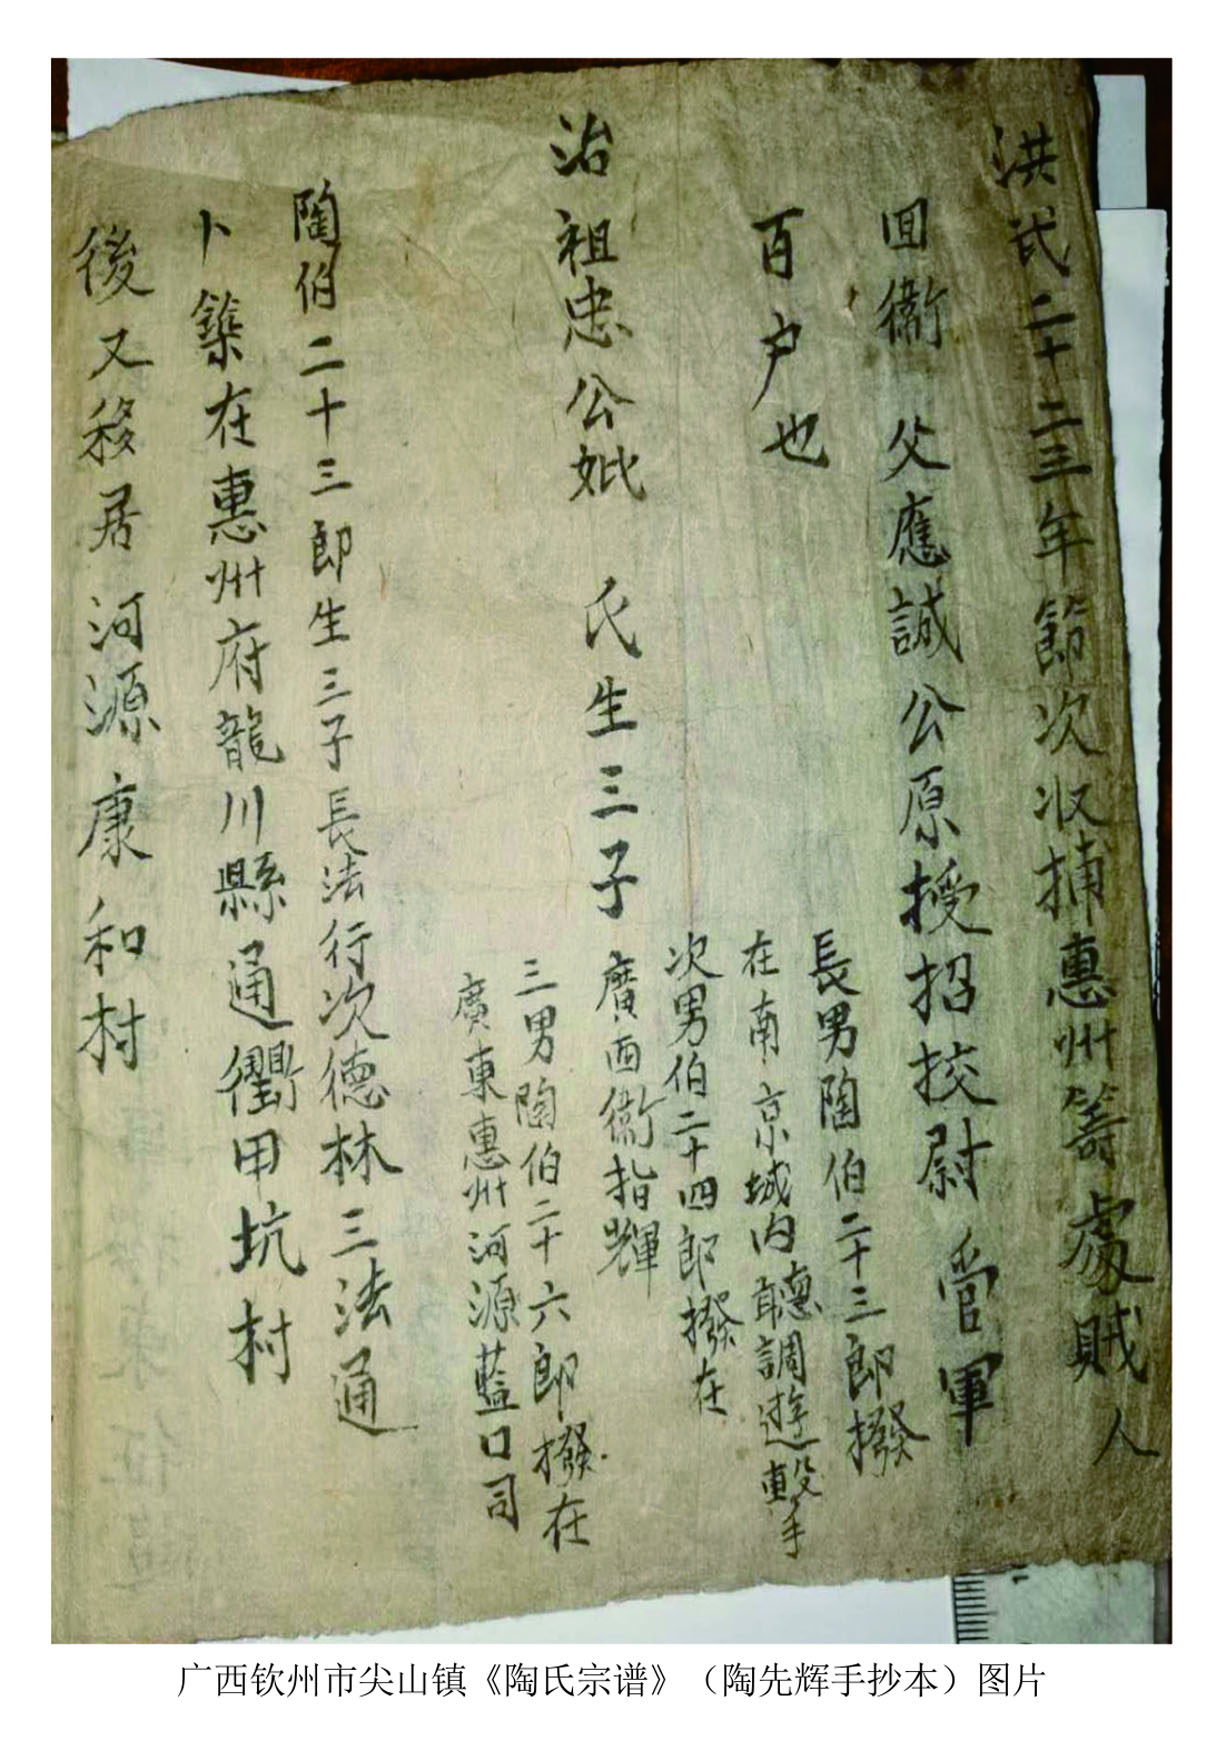 洪武二十二三年節次收捕惠州等處賊人
囬衞 父應誠公原授招挍尉 管軍
百户也
治祖忠公妣 氏生三子
長男陶伯二十三郎撥
在南京城内聽調遊擊
次男伯二十四郎撥在
廣西衞指揮
三男陶伯二十六郎撥在
廣東惠州河源藍口司
陶伯二十三郎生三子長法行次德林三法通
卜築在惠州府龍川縣通衢甲坑村
後又移居河源康和村
广西钦州市尖山镇《陶氏宗谱》（陶先辉手抄本）图片